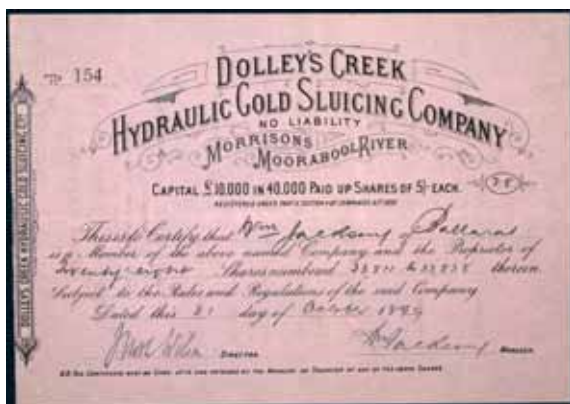 No 154
DOLLEY'S CREEK
HYDRAULIC GOLD SLUICING COMPANY
NO LIABILITY
MORRISONS
MOORABOOL RIVER
CAPITAL £10,000 IN 40,000 PAID UP SHARES OF 5/- EACH.
This is to Certify that Wm Jackson of Ballarat
is a Member of the above named Company and the Proprietor of
Twenty eight Shares numbered to therein
Subject to the Rules and Regulations of the said Company
Dated this 21 day of October 1899
DIRECTOR
MANAGER
DOLLEY'S CREEK HYDRAULIC GOLD SLUICING CO.